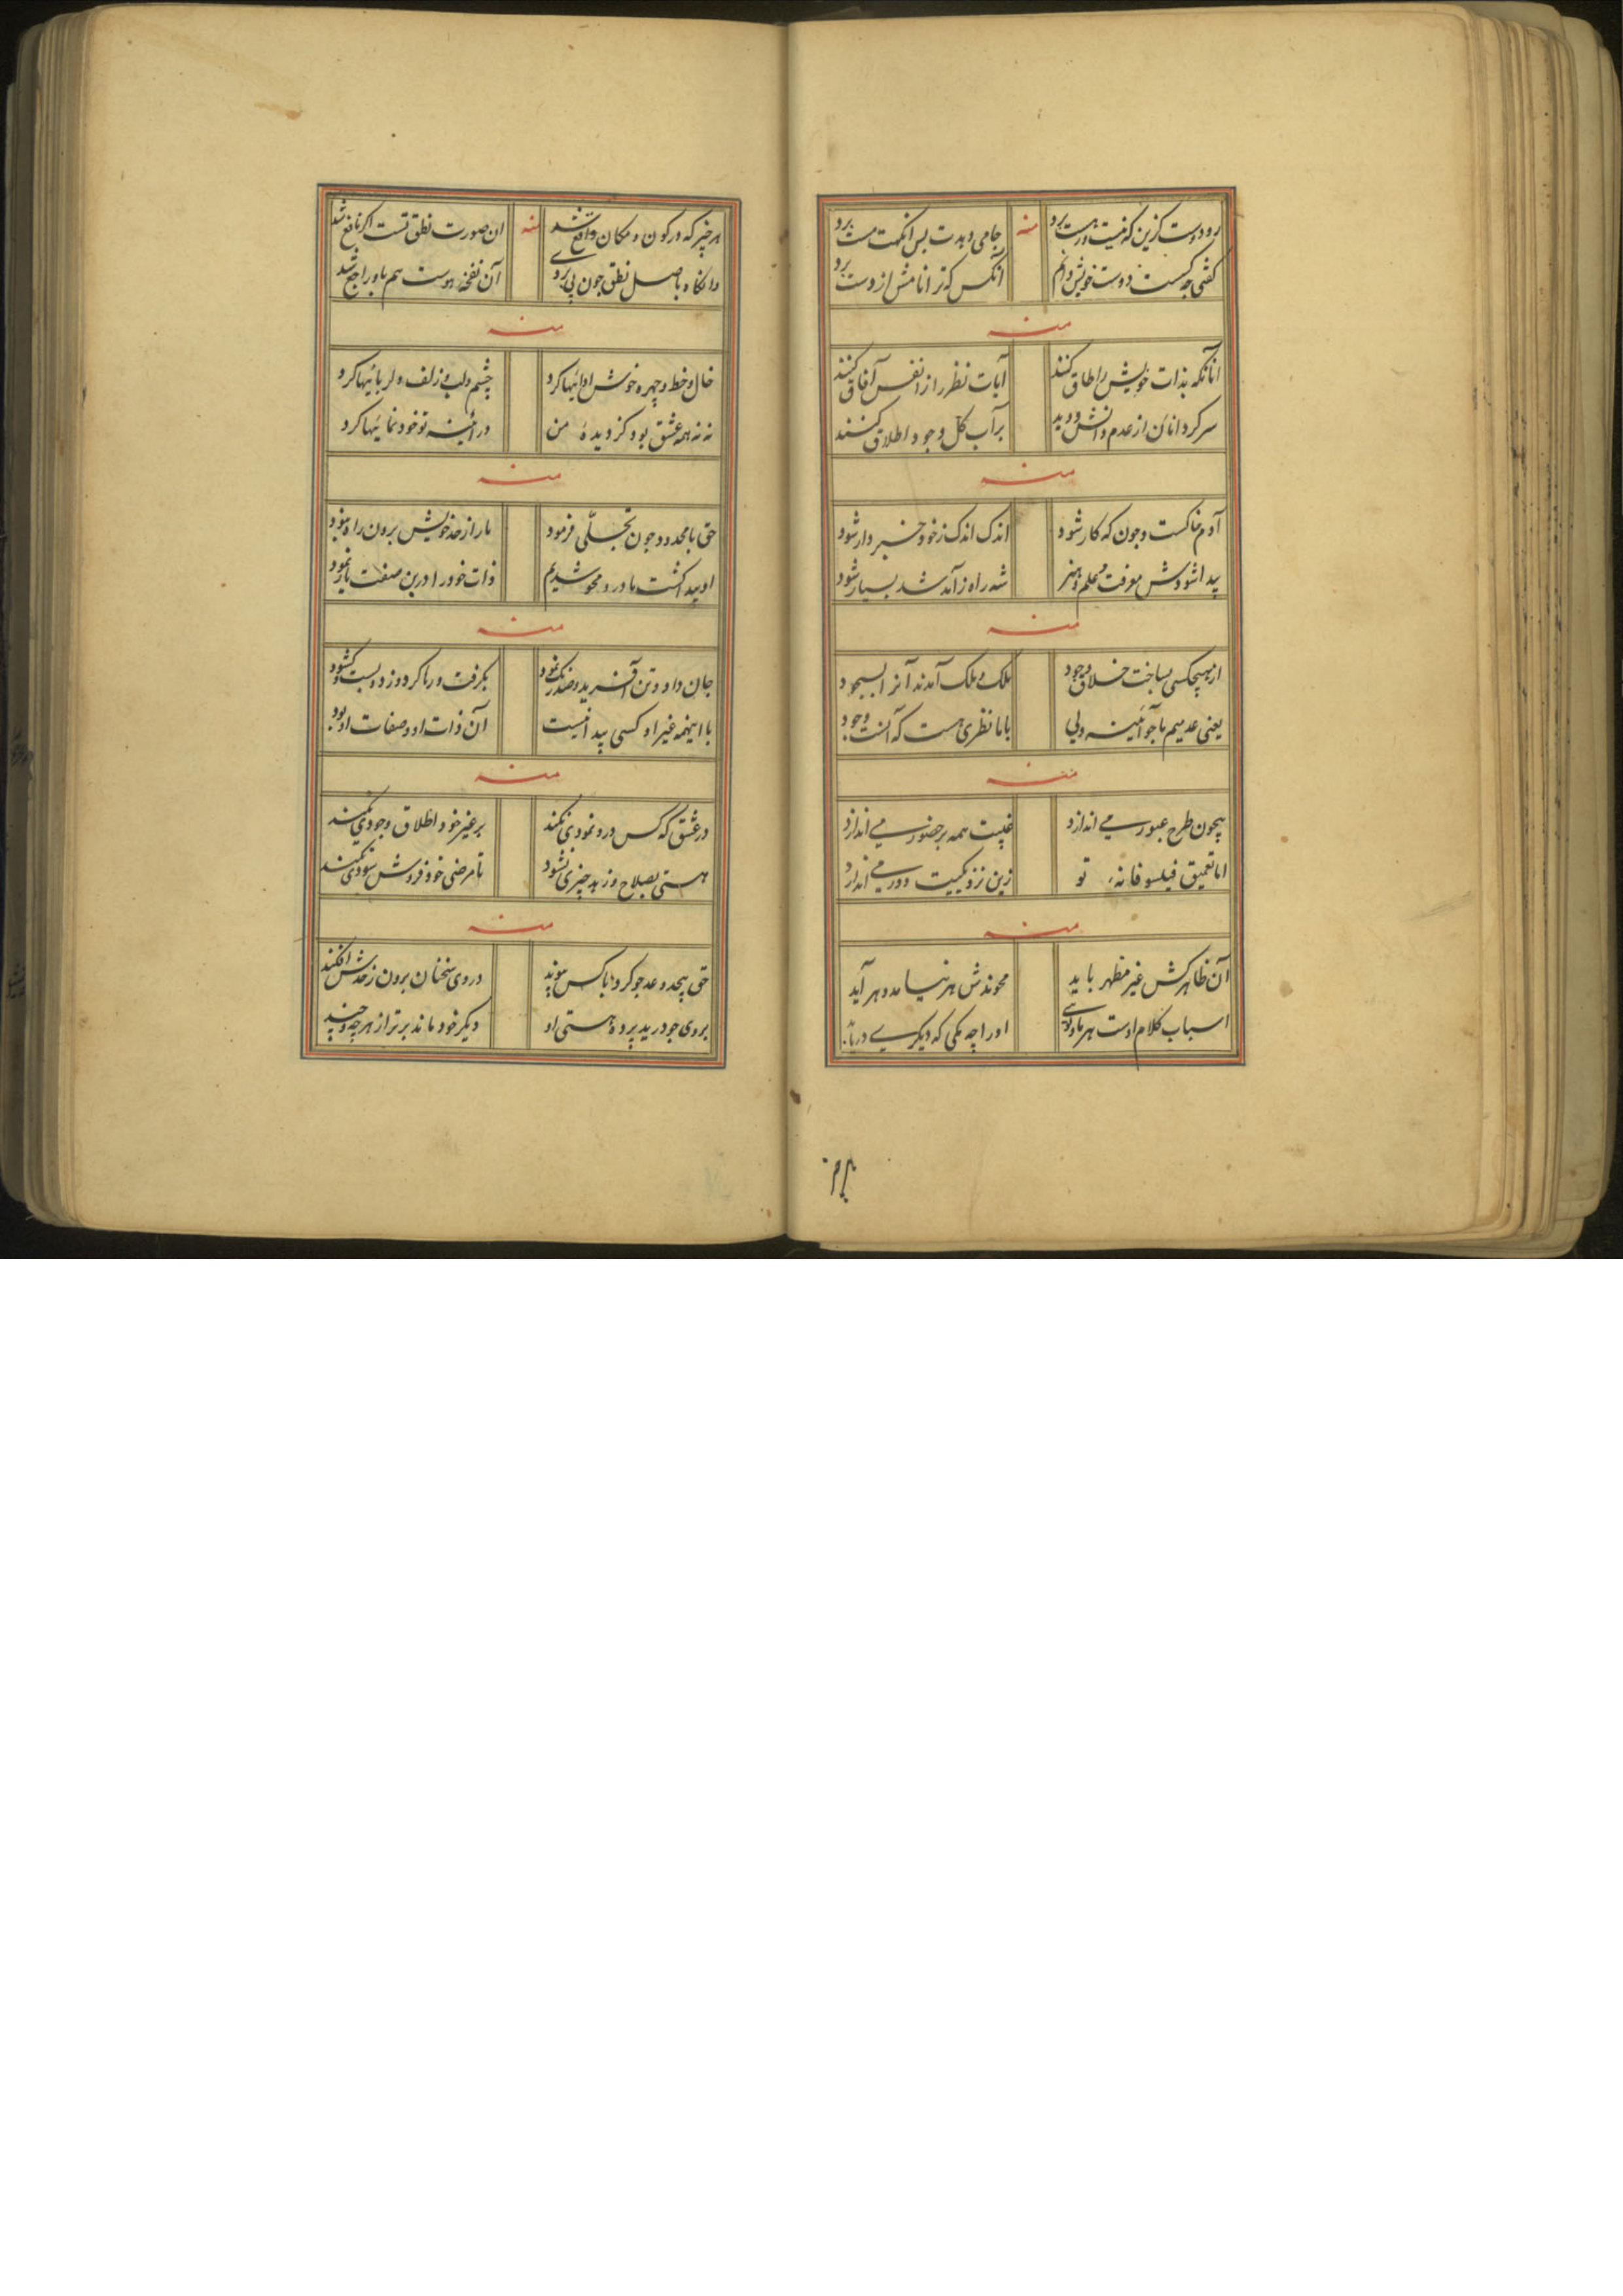 رو دوست گزین که نیست در هست برد منه جامی دهدت بس انکهت مست برد
گفتی چه کسست دوست خویش دانم آنکس که ترا نامش از دست برد
منه
آنانکه بذات خویش را طاق کنند آیات نظر را ز انفس آفاق کنند
سر کرد انان از عدم دانش و دید بر آب کل وجود اطلاق کنند
منه
آدم خاکست و چون که کار شود اندک اندک ز خود خبردار شود
پیدا شودش معرفت و علم و هنر شه راه ز آمد شد بسیار شود
منه
از هیچکسی ساخت خلاق وجود ملک و ملک آمدند آنرا بسجود
یعنی عدمیم ما چو آئینه ولی با ما نظری هست که آنست وجود
منه
بیچون طرح عبور می اندازد غیبت همه بر حضور می اندازد
اما تعمیق فیلسوفانه تو زین نزدیکیت دور می اندازد
منه
آن ظاهر کش غیر مظهر باید هر آید
اسباب کلام اوست هر او را چه مکی که دیگری
هر چیز که در کون و مکان واقع شد منه آن صورت نطق تست اگر نافع شد
وانگاه باصل نطق چون پی بردی آن نفخه هوست هم باو راجع شد
منه
خال و خط و چهره خوش ادائیها کرد چشم و لب و زلف دلربائیها کرد
نه نه همه عشق بود کز دیده من در آئینه تو خود نمائیها کرد
منه
حق با محدود چون تجلّی فرمود ما را از حد خویش برون راه نبود
او پیدا گشت ما درو محو شدیم ذات خود را درین صفت باز نمود
منه
جان داد و تن آفرید و صد رنگ نمود بگرفت و رها کرد و زد و بست و گشود
با اینهمه غیر او کسی پیدا نیست آن ذات او و صفات او بود
منه
در عشق که کس درو نمودی نکند بر غیر خود اطلاق وجودی نکند
هستی بصلاح و زهد چیزی نشود تا مرضی خود فروش سودی نکند
منه
حق بیحد و عد چو کرد با کس پیوند در وی سخنان برون ز حدش افکند
بروی چو درید پرده هستی او دیگر خود ماند برتر از هر چه و چند